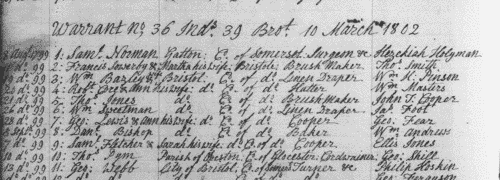 Warrant No. 36 Ind. 39 Brot. 10 March 1802
99 1: Saml. Norman Yatton: Co. of Somerset Surgeon & Hezekiah Holyman
do. 99 2: Francis & Martha his wife: Bristol: Brush Maker Thos. Smith
do. 99 3: Wm. Bazley & Bristol: Co. of do. Linen Draper Wm. K. Pinson
do. 99 4: Robt. & Ann his wife: do. Co. of do. Hatter Wm. Masters
do. 99 5: Thos. Jones do. Co. of do. Brush Maker John T. Cooper
do. 99 6: Wm. Sweetman do. Co. of do. Linen Draper Jas. Foot
do. 99 7: Geo: Lewis & Ann his wife: do. Co. of do. Cooper Geo: Fear
99 8: Danl. Bishop do. Co. of do. Baker Wm. Andrews
7 do. 99 9: Saml. Fletcher & Sarah his wife: do. Co. of do. Cooper Ellis Jones
10 do. 99 10: Thos. Pym Parish of Co. of Glocester: Cordwainer: Geo: Shill
13 do. 99 11: Geo: Webb City of Bristol, Co. of same Turner &c Philip Hoskin
Geo: Ferguson